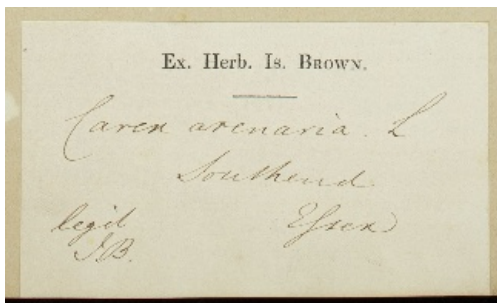 Ex. Herb. Is. Brown.
Carex arenaria. L
Southend
Essex
legit
I.B.